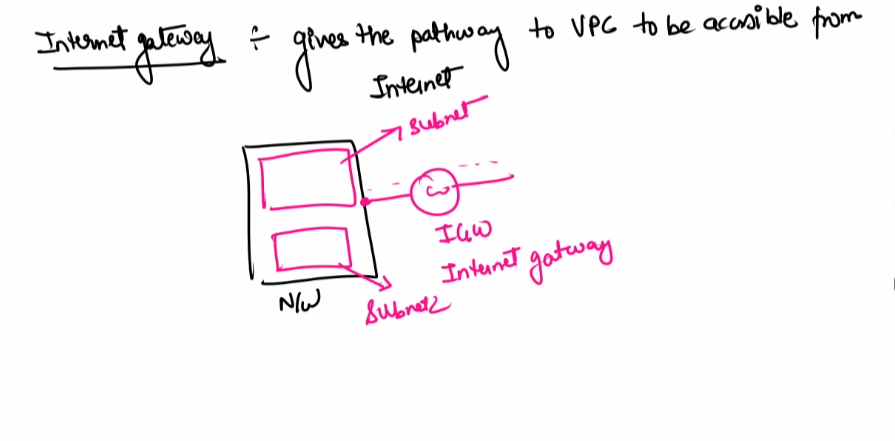 Internet gateway ÷ gives the pathway to VPC to be accesible from
Internet
Subnet
IGW
Internet gatway
N/W
Subnet2